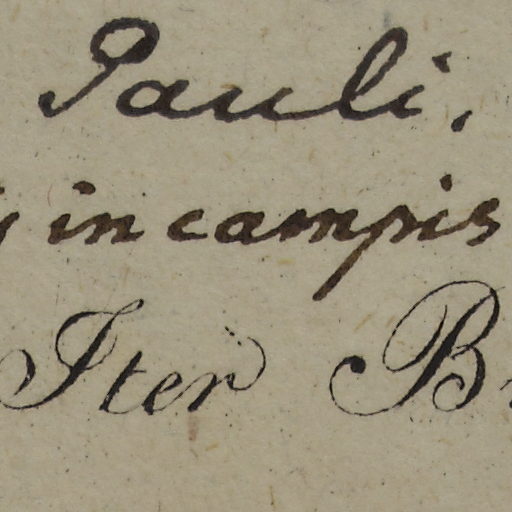 Pauli.
in campis
Iter B